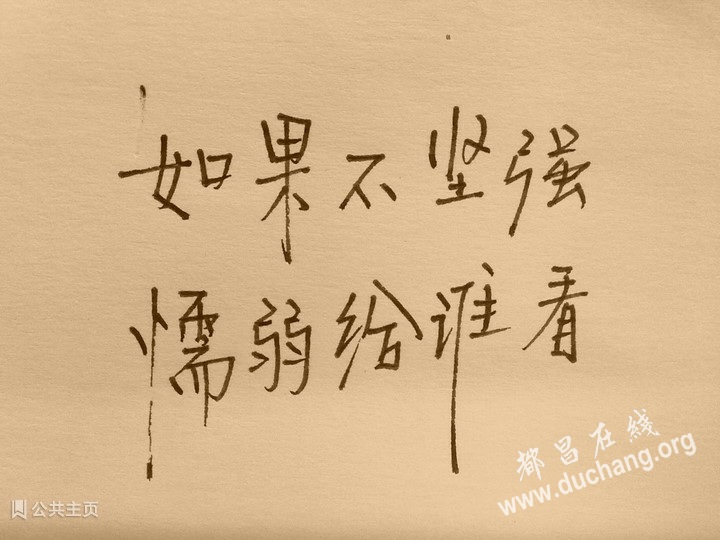 如果不坚强
懦弱给谁看
都昌在线
www.duchang.org
公共主页